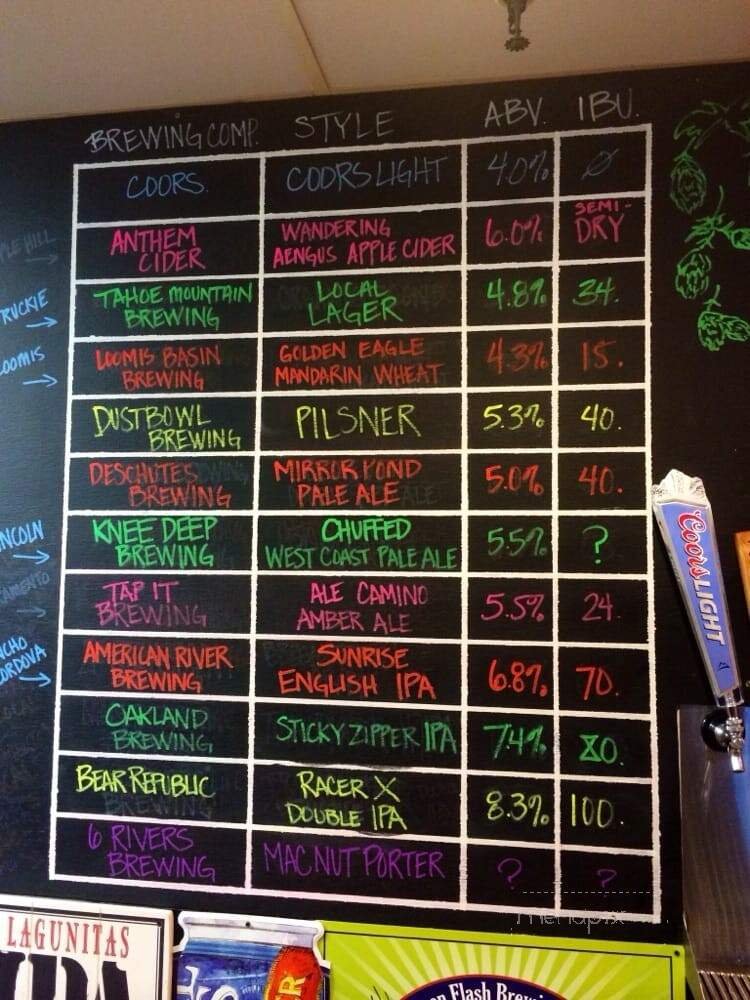 BREWING COMP. STYLE ABV. IBU.
COORS. COORS LIGHT 4.0% Ø
ANTHEM CIDER WANDERING AENGUS APPLE CIDER 6.0% SEMI-DRY
TAHOE MOUNTAIN BREWING LOCAL LAGER 4.8% 34.
LOOMIS BASIN BREWING GOLDEN EAGLE MANDARIN WHEAT 4.3% 15.
DUSTBOWL BREWING PILSNER 5.3% 40.
DESCHUTES BREWING MIRROR POND PALE ALE 5.0% 40.
KNEE DEEP BREWING CHUFFED WEST COAST PALE ALE 5.5% ?
TAP IT BREWING ALE CAMINO AMBER ALE 5.5% 24.
AMERICAN RIVER BREWING SUNRISE ENGLISH IPA 6.8% 70.
OAKLAND BREWING STICKY ZIPPER IPA 7.4% 80.
BEAR REPUBLIC BREWING RACER X DOUBLE IPA 8.3% 100.
6 RIVERS BREWING MAC NUT PORTER ? ?
PLE HILL
RUCKIE
OOMIS
NCOLN
AMENTO
NCHO
ORDOVA
Coors LIGHT
LAGUNITAS
IPA
Flash Brew
menupix